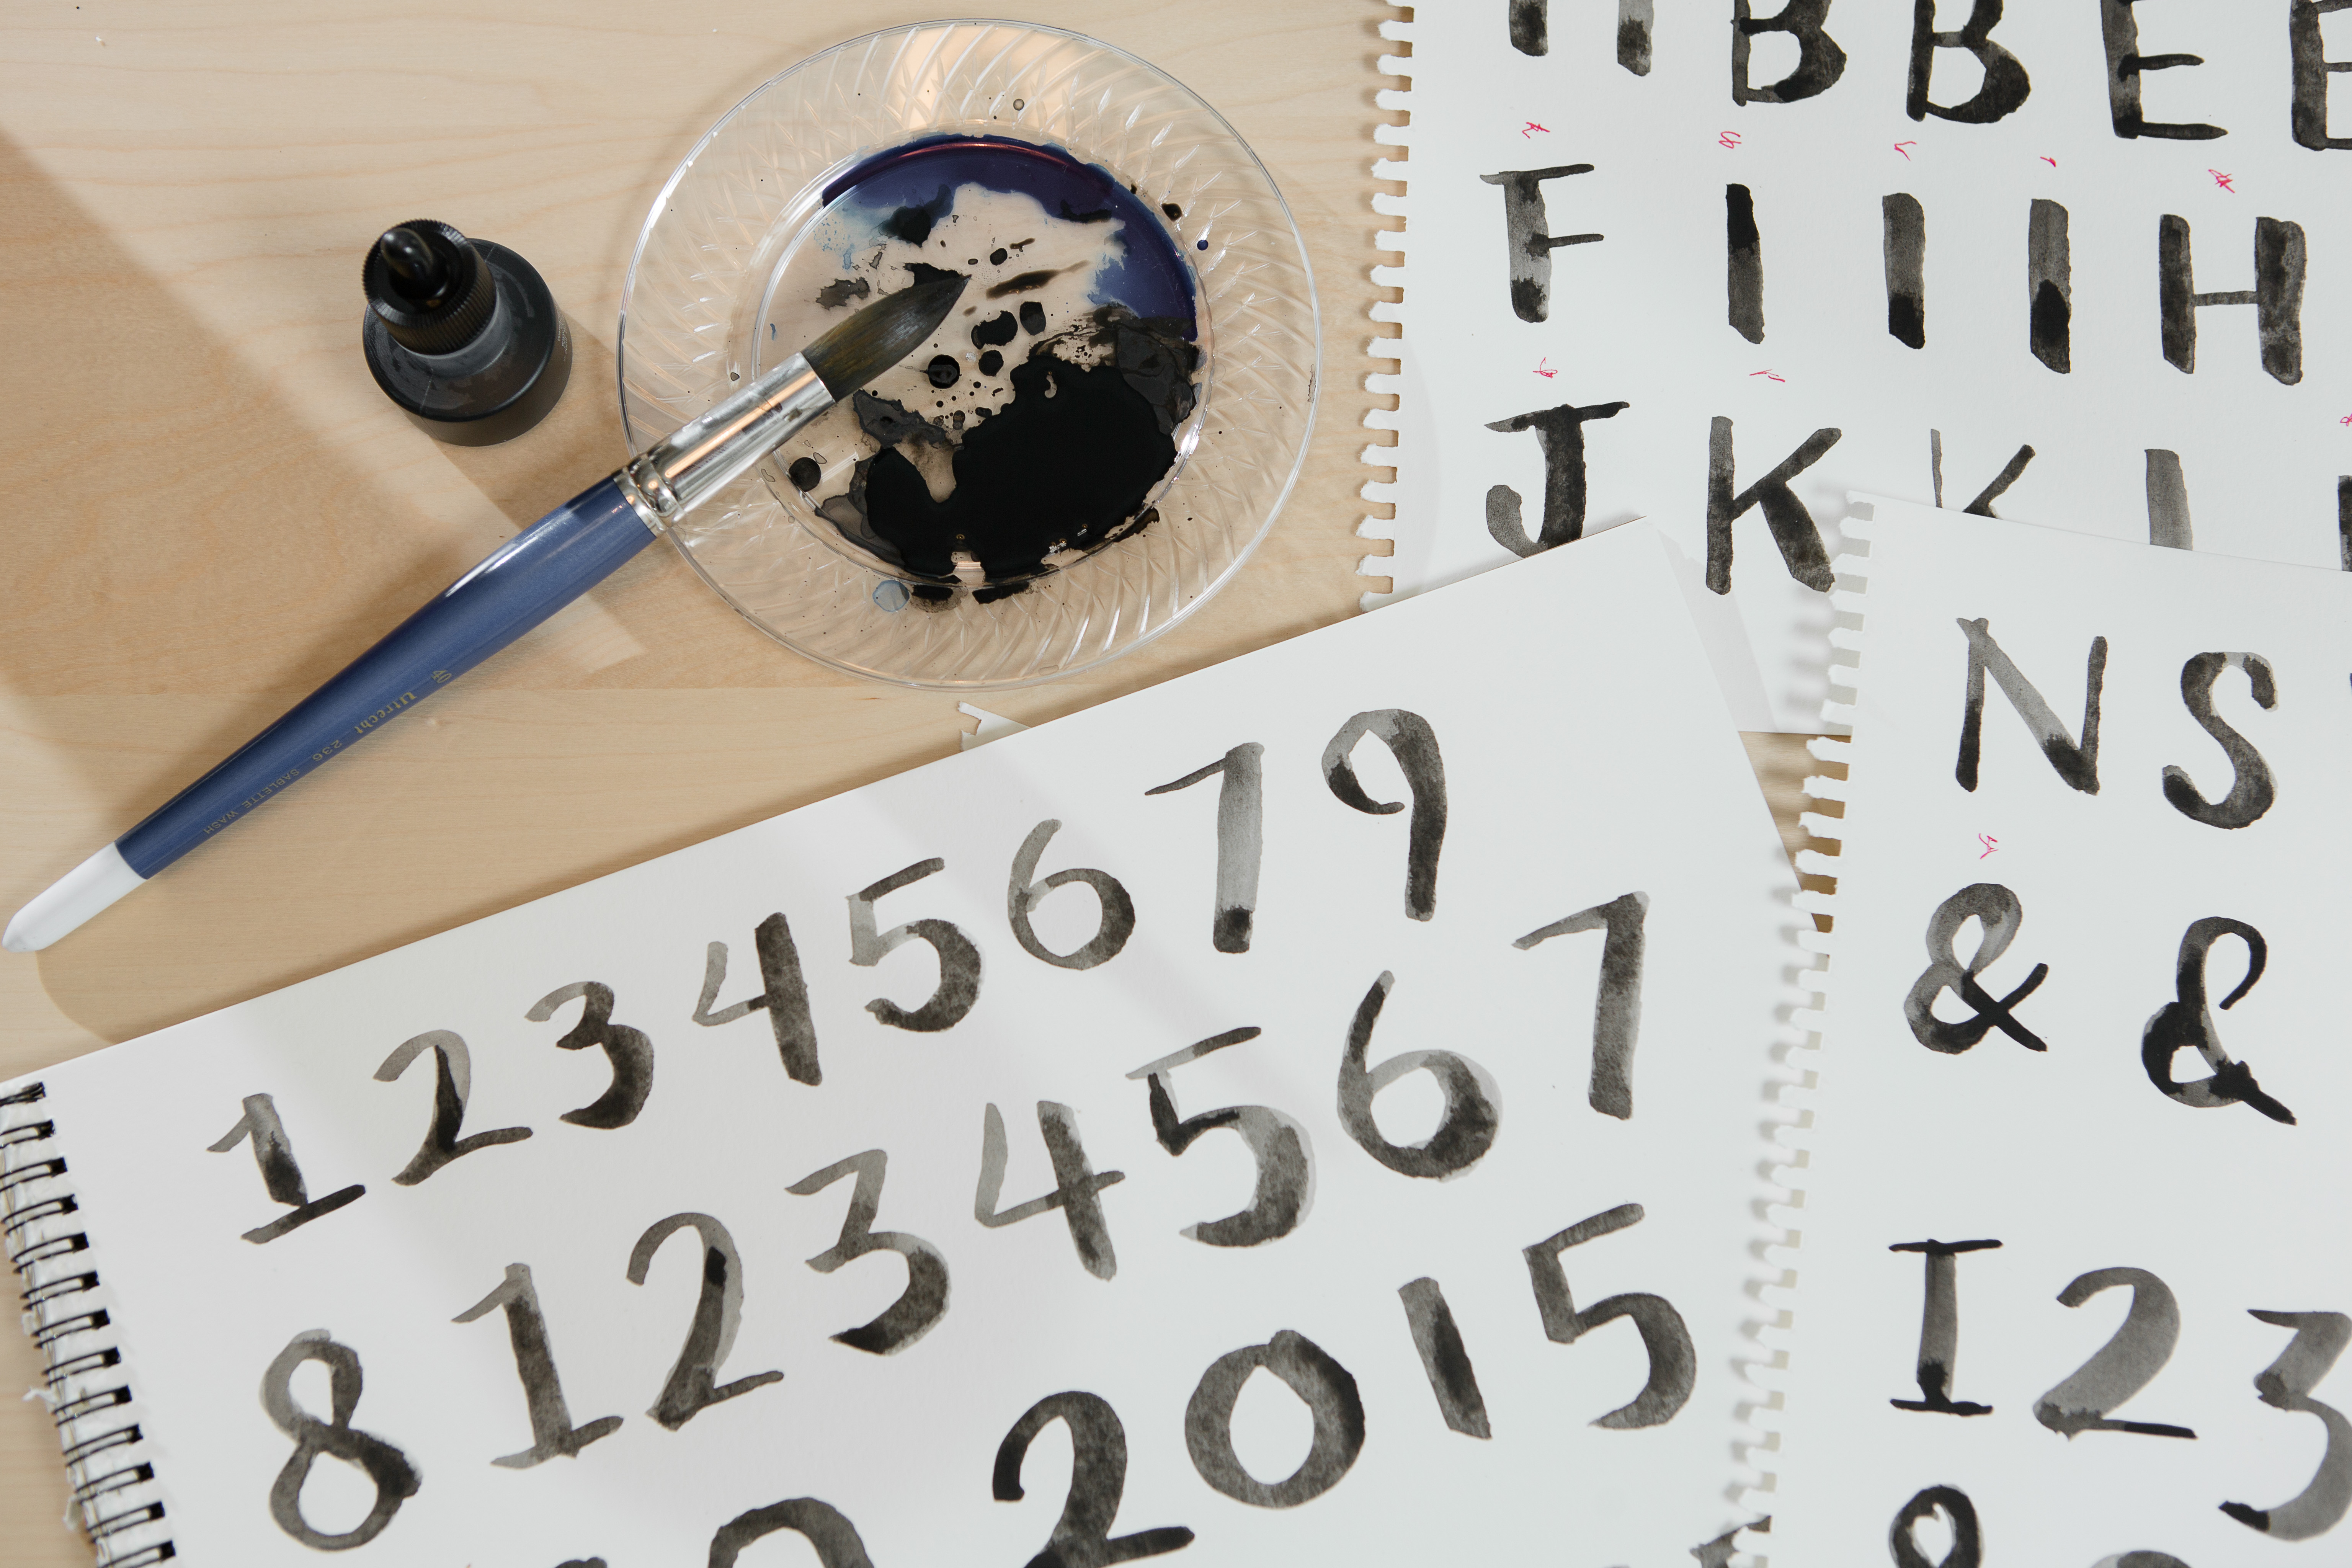 B B E E
F I I I H
J K K
Utrecht 236 SABLETTE WASH 40
1 2 3 4 5 6 7 9
1 2 3 4 5 6 7
8
2015
N S
& &
I 2 3